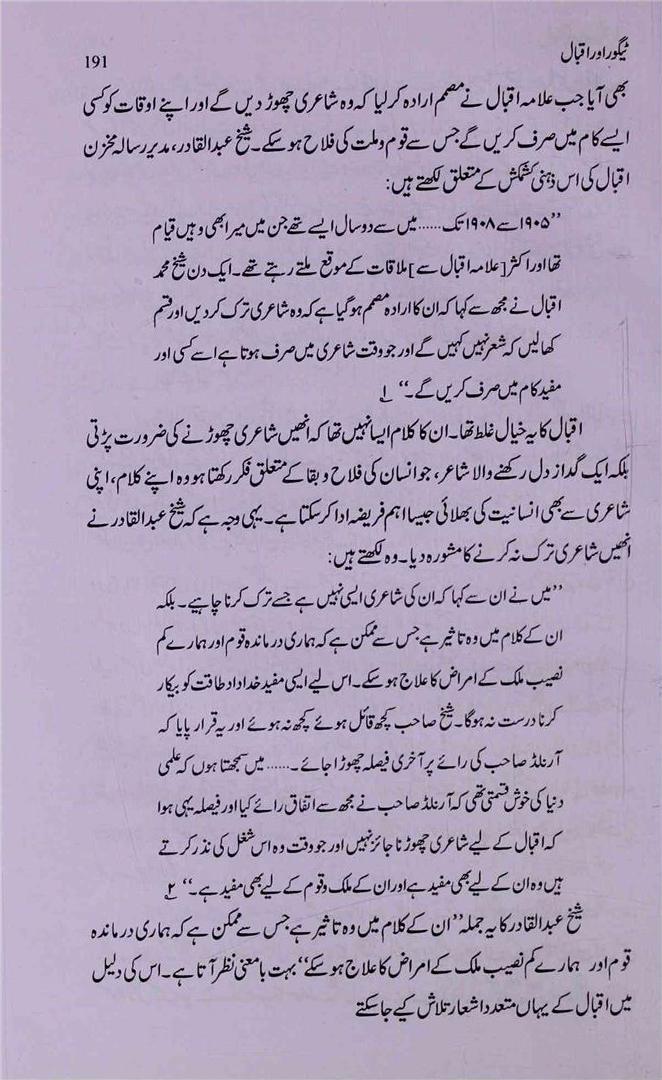 ٹیگور اور اقبال
191
بھی آیا جب علامہ اقبال نے مصمم ارادہ کر لیا کہ وہ شاعری چھوڑ دیں گے اور اپنے اوقات کو کسی
ایسے کام میں صرف کریں گے جس سے قوم و ملت کی فلاح ہو سکے۔ شیخ عبدالقادر، مدیر رسالہ مخزن
اقبال کی اس ذہنی کشمکش کے متعلق لکھتے ہیں:
”۱۹۰۵ سے ۱۹۰۸ تک...... میں سے دو سال ایسے تھے جن میں میرا بھی وہیں قیام
تھا اور اکثر [علامہ اقبال سے] ملاقات کے موقع ملتے رہتے تھے۔ ایک دن شیخ محمد
اقبال نے مجھ سے کہا کہ ان کا ارادہ مصمم ہو گیا ہے کہ وہ شاعری ترک کر دیں اور قسم
کھا لیں کہ شعر نہیں کہیں گے اور جو وقت شاعری میں صرف ہوتا ہے اسے کسی اور
مفید کام میں صرف کریں گے۔“ ۱
اقبال کا یہ خیال غلط تھا۔ ان کا کلام ایسا نہیں تھا کہ انھیں شاعری چھوڑنے کی ضرورت پڑتی
بلکہ ایک گداز دل رکھنے والا شاعر، جو انسان کی فلاح و بقا کے متعلق فکر رکھتا ہو وہ اپنے کلام، اپنی
شاعری سے بھی انسانیت کی بھلائی جیسا اہم فریضہ ادا کر سکتا ہے۔ یہی وجہ ہے کہ شیخ عبدالقادر نے
انھیں شاعری ترک نہ کرنے کا مشورہ دیا۔ وہ لکھتے ہیں:
”میں نے ان سے کہا کہ ان کی شاعری ایسی نہیں ہے جسے ترک کرنا چاہیے۔ بلکہ
ان کے کلام میں وہ تاثیر ہے جس سے ممکن ہے کہ ہماری درماندہ قوم اور ہمارے کم
نصیب ملک کے امراض کا علاج ہو سکے۔ اس لیے ایسی مفید خداداد طاقت کو بیکار
کرنا درست نہ ہوگا۔ شیخ صاحب کچھ قائل ہوئے کچھ نہ ہوئے اور یہ قرار پایا کہ
آرنلڈ صاحب کی رائے پر آخری فیصلہ چھوڑا جائے۔...... میں سمجھتا ہوں کہ علمی
دنیا کی خوش قسمتی تھی کہ آرنلڈ صاحب نے مجھ سے اتفاق رائے کیا اور فیصلہ یہی ہوا
کہ اقبال کے لیے شاعری چھوڑنا جائز نہیں اور جو وقت وہ اس شغل کی نذر کرتے
ہیں وہ ان کے لیے بھی مفید ہے اور ان کے ملک و قوم کے لیے بھی مفید ہے۔“ ۲
شیخ عبدالقادر کا یہ جملہ ”ان کے کلام میں وہ تاثیر ہے جس سے ممکن ہے کہ ہماری درماندہ
قوم اور ہمارے کم نصیب ملک کے امراض کا علاج ہو سکے“ بہت بامعنی نظر آتا ہے۔ اس کی دلیل
میں اقبال کے یہاں متعدد اشعار تلاش کیے جا سکتے